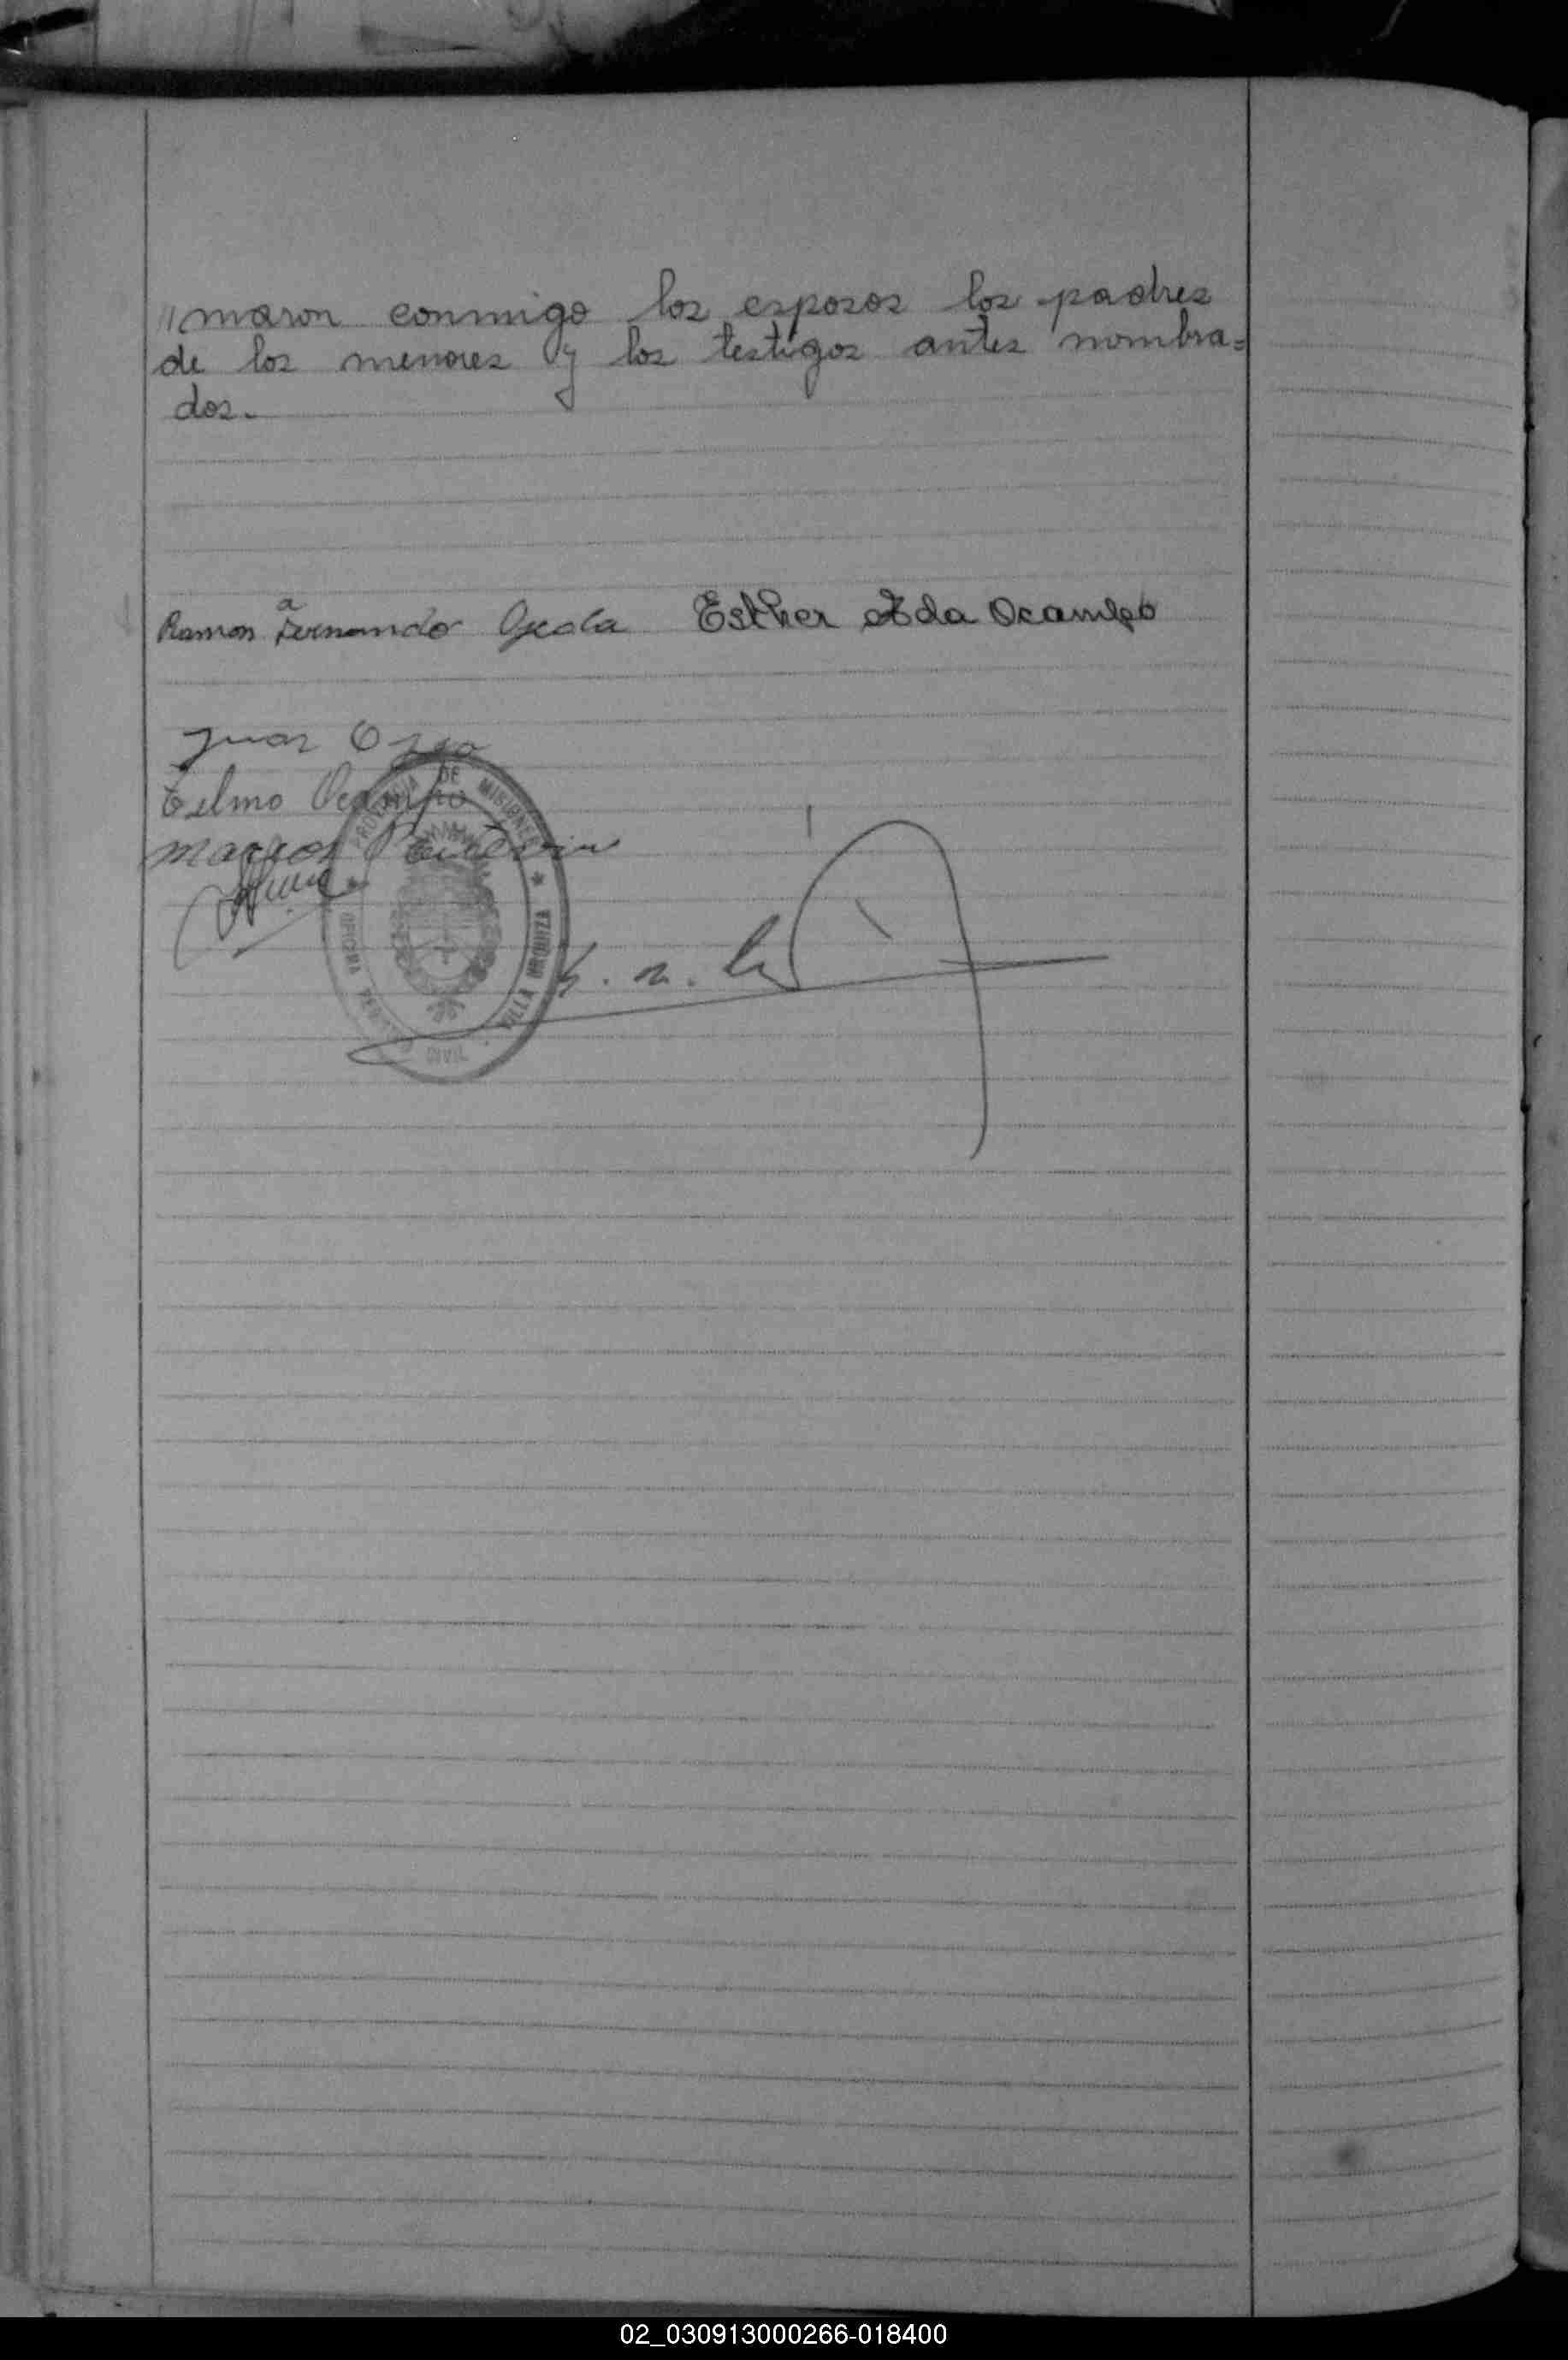 "maron conmigo los esposos los padres
de los menores y los testigos antes nombra=
dos.-
a
Ramon Fernando Ojeda Esther Ada Ocampo
Juan
Telmo Ocampo
Marcos
PROVINCIA DE MISIONES ★ VILLA URQUIZA
★ OFICINA REGISTRO CIVIL
02_030913000266-018400